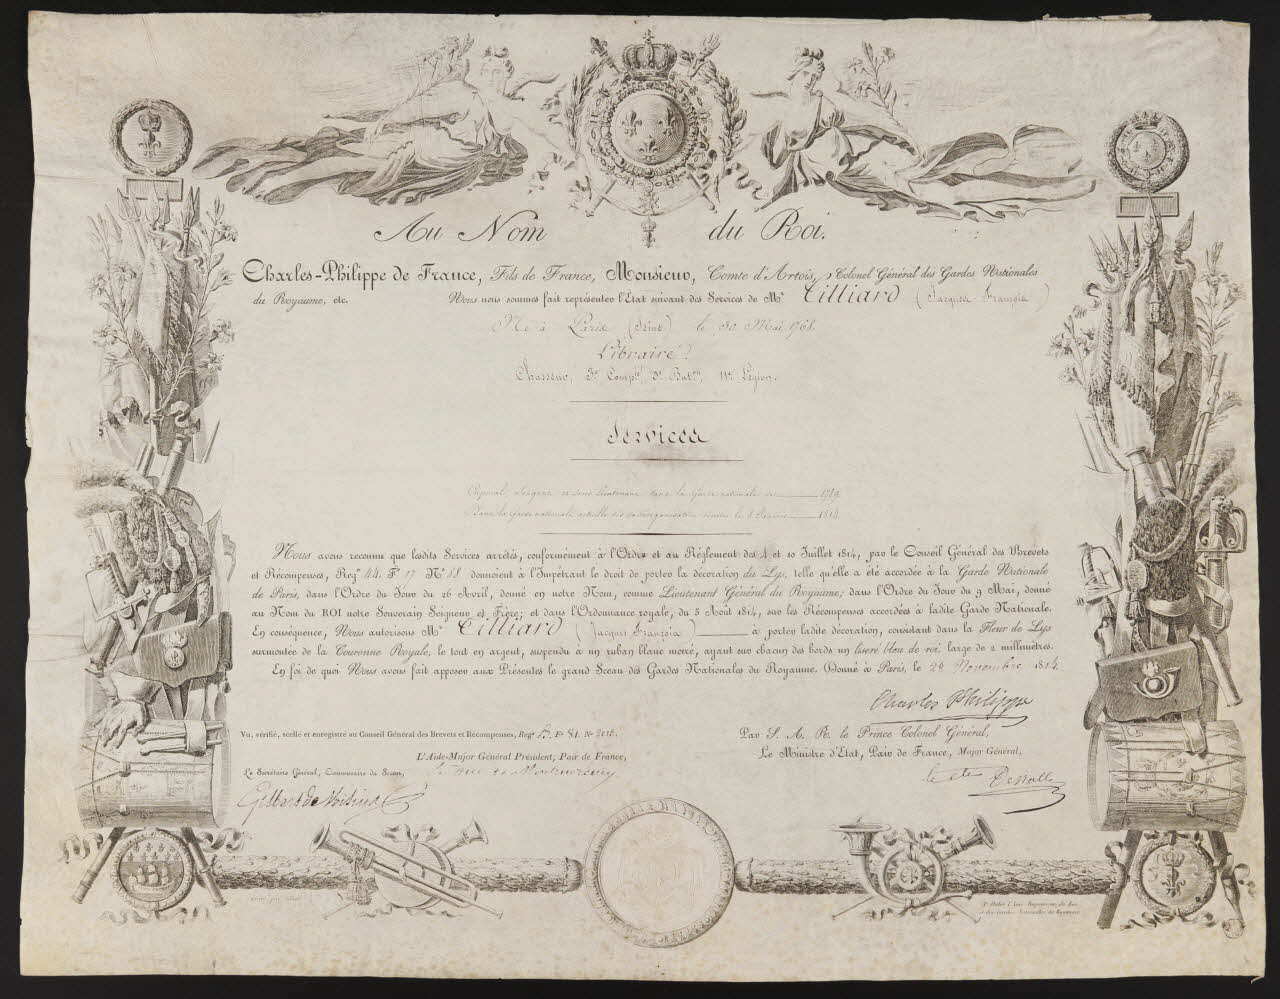 Au Nom du Roi.
Charles-Philippe de France, Fils de France, Monsieur, Comte d'Artois, Colonel Général des Gardes Nationales
du Royaume, etc. Nous nous sommes fait représenter l'Etat suivant des Services de Mr. Tilliard (Jacques François)
Né à Paris (Seine) le 30 Mai 1761.
Libraire.
Chasseur, 3e Compie 3e Baton, 11e Légion.
Services
Caporal, Sergent et Sous Lieutenant dans la Garde nationale de 1789.
Dans la Garde nationale actuelle dès sa réorganisation le 8 Janvier 1814.
Nous avons reconnu que lesdits Services arrêtés, conformément à l'Ordre et au Réglement des 4 et 10 Juillet 1814, par le Conseil Général des Brevets
et Récompenses, Regre 44. Fo 17 No 88 donnoient à l'Impétrant le droit de porter la décoration du Lys, telle qu'elle a été accordée à la Garde Nationale
de Paris, dans l'Ordre du Jour du 26 Avril, donné en notre Nom, comme Lieutenant Général du Royaume; dans l'Ordre du Jour du 9 Mai, donné
au Nom du ROI notre Souverain Seigneur et Frère; et dans l'Ordonnance royale, du 5 Août 1814, sur les Récompenses accordées à ladite Garde Nationale.
En conséquence, Nous autorisons Mr Tilliard (Jacques François) à porter ladite décoration, consistant dans la Fleur de Lys
surmontée de la Couronne Royale, le tout en argent, suspendu à un ruban blanc moiré, ayant sur chacun des bords un liseré bleu de roi large de 2 millimètres.
En foi de quoi Nous avons fait apposer aux Présentes le grand Sceau des Gardes Nationales du Royaume. Donné à Paris, le 24 Novembre 1814.
Charles Philippe
Vu, vérifié, scellé et enregistré au Conseil Général des Brevets et Récompenses, Regre Fo 81. No 2018.
Par S. A. R. le Prince Colonel Général,
L'Aide-Major Général Président, Pair de France,
Le Ministre d'Etat, Pair de France, Major Général,
Le Secrétaire Général, Commissaire du Sceau,
le Duc de Montmorency
le cte Dessolle
Gilbert de Voisins